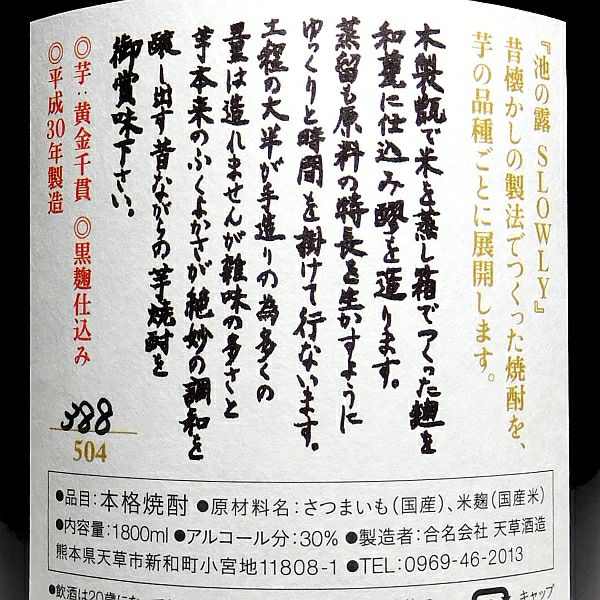 『池の露 SLOWLY』
昔懐かしの製法でつくった焼酎を、
芋の品種ごとに展開します。
木製甑で米を蒸し箱でつくった麹を
和甕に仕込み醪を造ります。
蒸留も原料の特長を生かすように
ゆっくりと時間を掛けて行ないます。
工程の大半が手造りの為多くの
量は造れませんが雑味の多さと
芋本来のふくよかさが絶妙の調和を
醸し出す昔ながらの芋焼酎を
御賞味下さい。
◎芋：黄金千貫 ◎黒麹仕込み
◎平成30年製造
388
504
●品目：本格焼酎 ●原材料名：さつまいも（国産）、米麹（国産米）
●内容量：1800ml ●アルコール分：30% ●製造者：合名会社 天草酒造
熊本県天草市新和町小宮地11808-1 ●TEL：0969-46-2013
●飲酒は20歳になって
キャップ